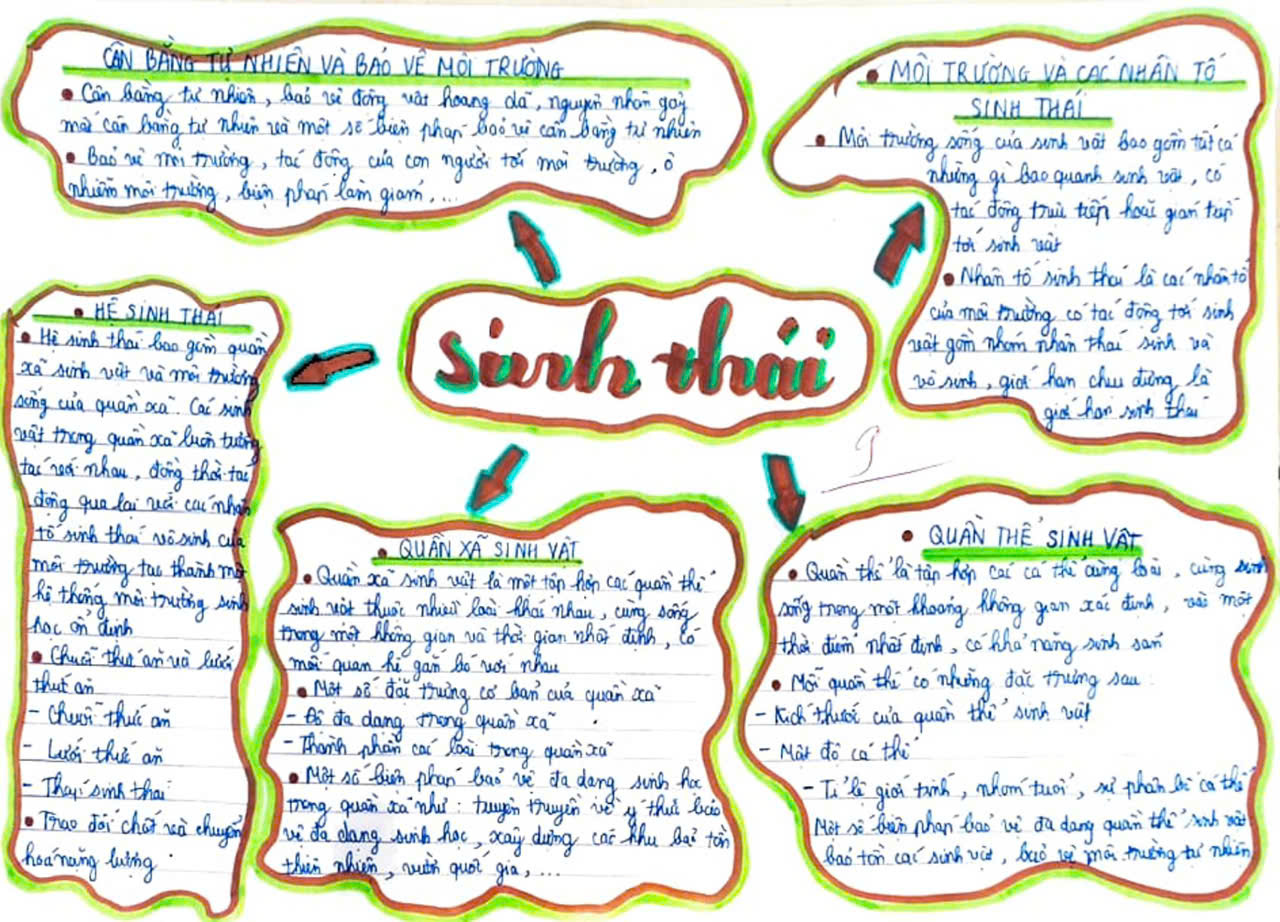 Sinh thái
CÂN BẰNG TỰ NHIÊN VÀ BẢO VỆ MÔI TRƯỜNG
• Cân bằng tự nhiên, bảo vệ động vật hoang dã, nguyên nhân gây
mất cân bằng tự nhiên và một số biện pháp bảo vệ cân bằng tự nhiên
• Bảo vệ môi trường, tác động của con người tới môi trường, ô
nhiễm môi trường, biện pháp làm giảm, ...
• MÔI TRƯỜNG VÀ CÁC NHÂN TỐ
SINH THÁI
• Môi trường sống của sinh vật bao gồm tất cả
những gì bao quanh sinh vật, có
tác động trực tiếp hoặc gián tiếp
tới sinh vật
• Nhân tố sinh thái là các nhân tố
của môi trường có tác động tới sinh
vật gồm nhóm nhân thái sinh và
vô sinh, giới hạn chịu đựng là
giới hạn sinh thái
• HỆ SINH THÁI
• Hệ sinh thái bao gồm quần
xã sinh vật và môi trường
sống của quần xã. Các sinh
vật trong quần xã luôn tương
tác với nhau, đồng thời tác
động qua lại với các nhân
tố sinh thái vô sinh của
môi trường tạo thành một
hệ thống môi trường sinh
học ổn định
• Chuỗi thức ăn và lưới
thức ăn
- Chuỗi thức ăn
- Lưới thức ăn
- Tháp sinh thái
• Trao đổi chất và chuyển
hoá năng lượng
• QUẦN XÃ SINH VẬT
• Quần xã sinh vật là một tập hợp các quần thể
sinh vật thuộc nhiều loài khác nhau, cùng sống
trong một không gian và thời gian nhất định, có
mối quan hệ gắn bó với nhau
• Một số đặc trưng cơ bản của quần xã
- Độ đa dạng trong quần xã
- Thành phần các loài trong quần xã
• Một số biện pháp bảo vệ đa dạng sinh học
trong quần xã như: truyên truyền về ý thức bảo
vệ đa dạng sinh học, xây dựng các khu bảo tồn
thiên nhiên, vườn quốc gia, ...
• QUẦN THỂ SINH VẬT
• Quần thể là tập hợp các cá thể cùng loài, cùng sinh
sống trong một khoảng không gian xác định, vào một
thời điểm nhất định, có khả năng sinh sản
• Mỗi quần thể có những đặc trưng sau:
- Kích thước của quần thể sinh vật
- Mật độ cá thể
- Tỉ lệ giới tính, nhóm tuổi, sự phân bố cá thể
Một số biện pháp bảo vệ đa dạng quần thể sinh vật
bảo tồn các sinh vật, bảo vệ môi trường tự nhiên